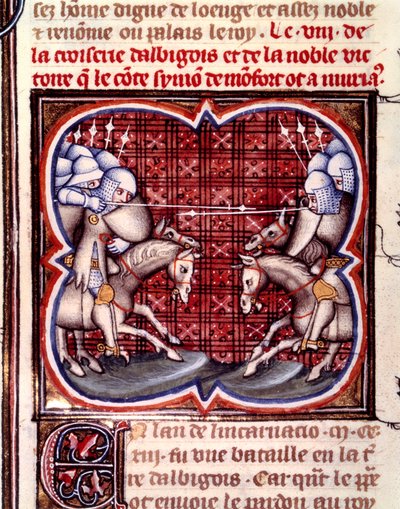 sez hõme digne de loenge et assez noble
⁊ renõme ou palais le roy. Le .viii. de
la croiserie dalbigois et de la noble vic
toire q̃ le cõte symõ de mõfort ot a muria᷒.
En lan de lincarnacio. M. CC.
xiii. fu vne bataille en la t̃
re dalbigois. Car quãt le pp̃e
ot enuoie le pardon au roy